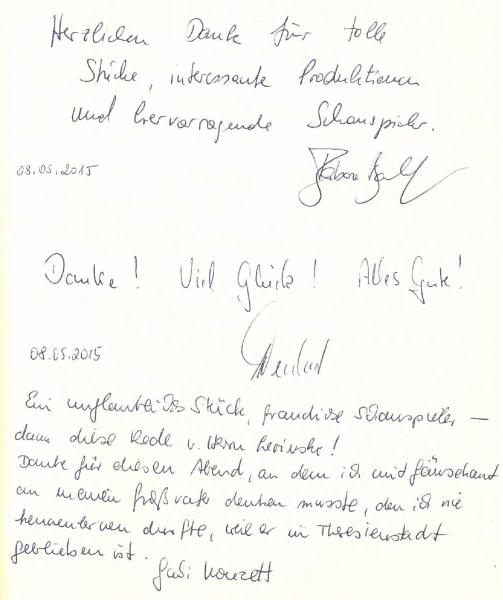 Herzlichen Dank für tolle
Stücke, interessante Produktionen
und hervorragende Schauspieler.
08.05.2015
Danke! Viel Glück! Alles Gute!
08.05.2015
Ein unglaubliches Stück, grandiose Schauspieler –
dann diese Rede v. Herrn Lewinsky!
Danke für diesen Abend, an dem ich mit
an meinen Großvater denken musste, den ich nie
kennenlernen durfte, weil er in Theresienstadt
geblieben ist.
Gabi Konzett